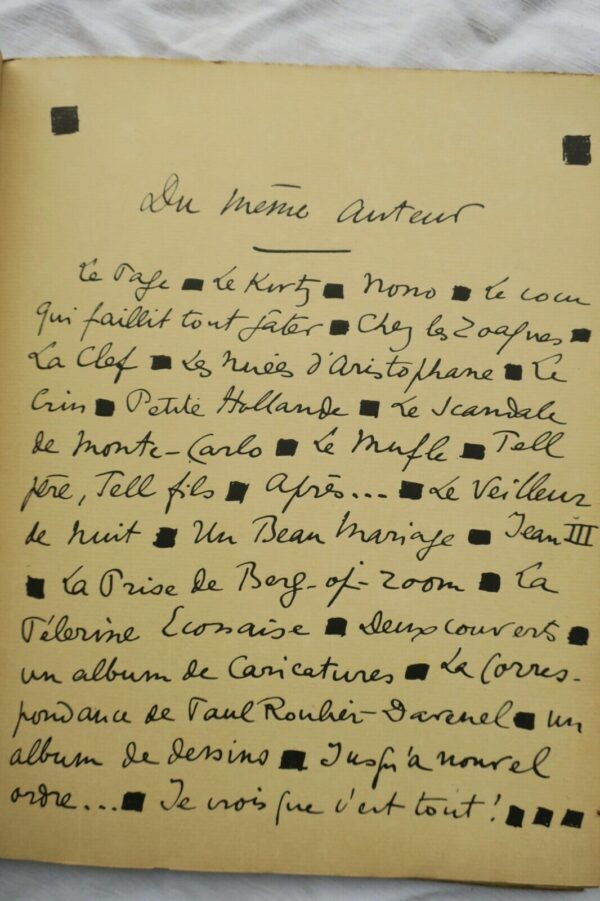 Du même auteur
Le Page ■ Le Kwtz ■ Nono ■ Le cœur
qui faillit tout gâter ■ Chez les Zoaques ■
La Clef ■ Les Nuées d'Aristophane ■ Le
Crin ■ Petite Hollande ■ Le Scandale
de Monte-Carlo ■ Le Mufle ■ Tell
père, Tell fils ■ Après... ■ Le Veilleur
de Nuit ■ Un Beau Mariage ■ Jean III
■ La Prise de Berg-op-Zoom ■ La
Pélerine Ecossaise ■ Deux couverts ■
un album de Caricatures ■ La Corres-
pondance de Paul Roulier-Davenel ■ un
album de dessins ■ Jusqu'à nouvel
ordre... ■ Je crois que c'est tout! ■ ■ ■